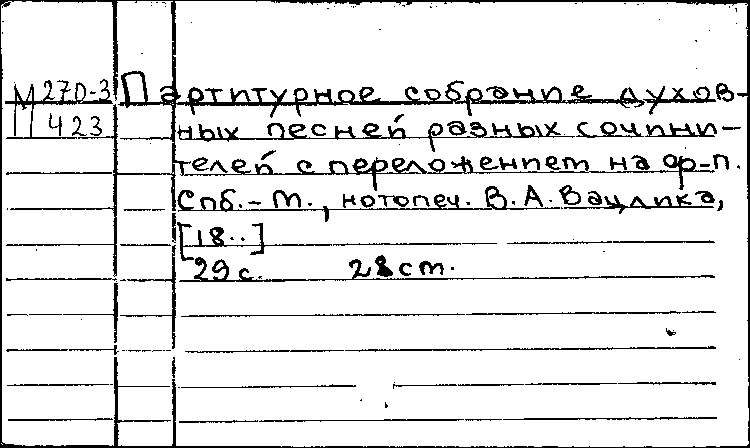 М 270-3 Партитурное собрание духов-
423 ных песней разных сочини-
телей с переложением на ф-п.
Спб.-М., нотопеч. В.А.Вацлика,
[18..]
29 с. 28 см.